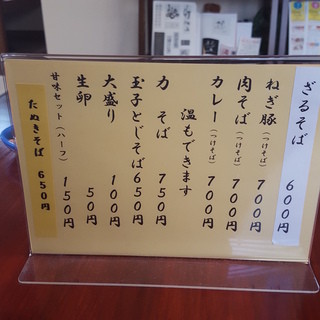 ざるそば 600円
ねぎ豚（つけそば） 700円
肉そば（つけそば） 700円
カレー（つけそば） 700円
温もできます
力そば 750円
玉子とじそば 650円
大盛り 100円
生卵 50円
甘味セット（ハーフ） 150円
たぬきそば 650円